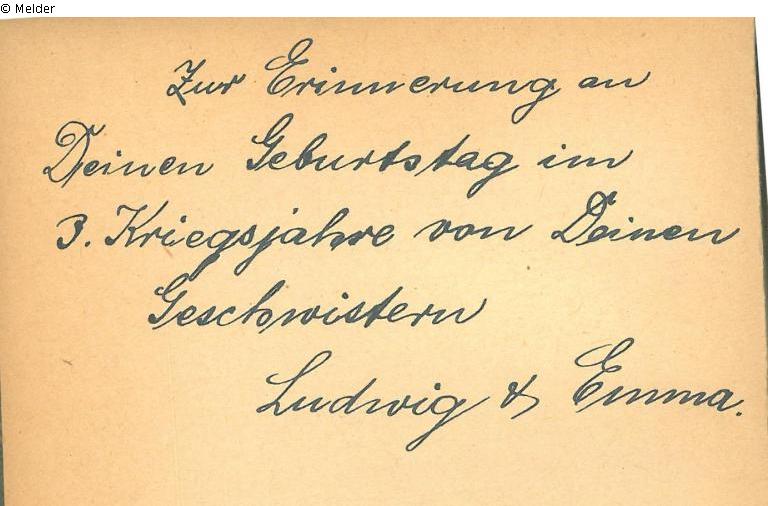 © Melder
Zur Erinnerung an
Deinen Geburtstag im
3. Kriegsjahre von Deinen
Geschwistern
Ludwig & Emma.